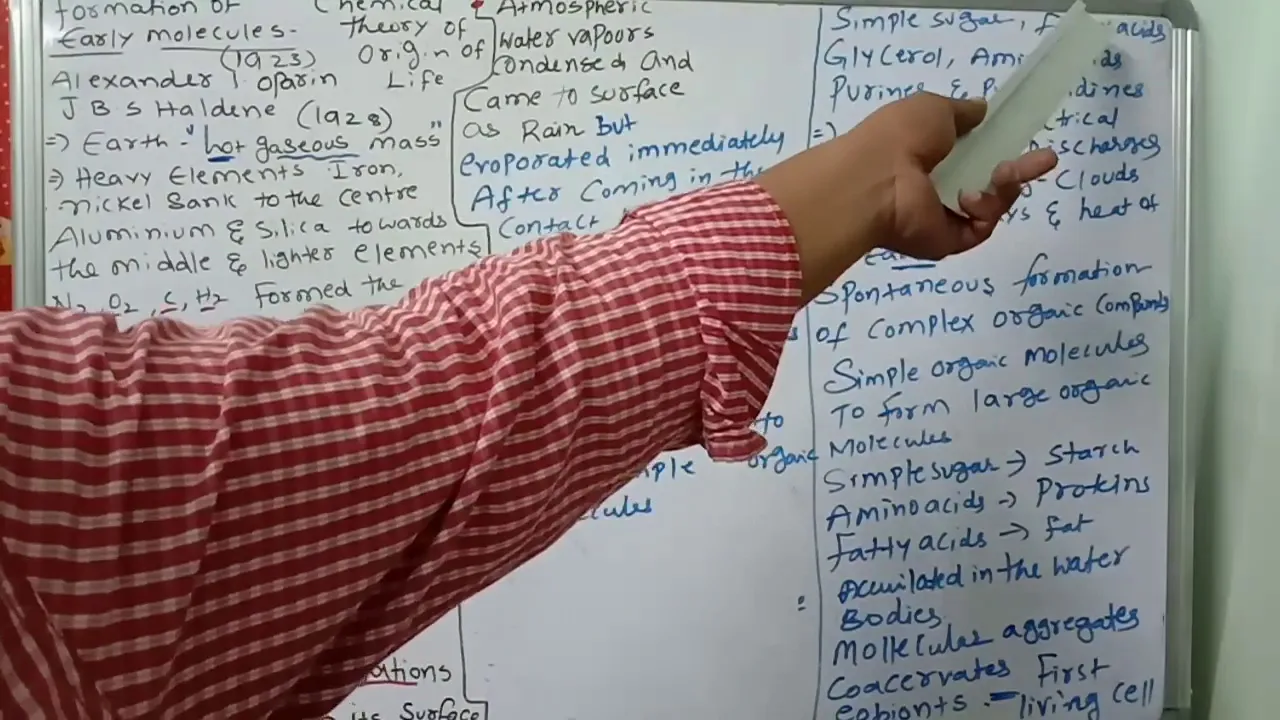 formation of Chemical
Early molecules- theory of
(1923) Origin of
Alexander I oparin Life
J B S Haldene (1928)
=> Earth - "hot gaseous mass"
=> Heavy Elements Iron,
nickel Sank to the centre
Aluminium & Silica towards
the middle & lighter elements
N2, O2, C, H2 Formed the
ations
its Surface
Atmospheric
water vapours
Condensed And
Came to surface
as Rain But
evoporated immediately
After Coming in the
Contact
to
organic
Simple sugar, acids
Glycerol,
Purines &
=>
Discharges
Clouds
& heat of
Spontaneous formation
of complex organic compounds
Simple organic molecules
To form large organic
Molecules
Simple sugar → Starch
Amino acids → Proteins
Fatty acids → Fat
in the water
Bodies
aggregates
Coacervates First
eobionts - living cell